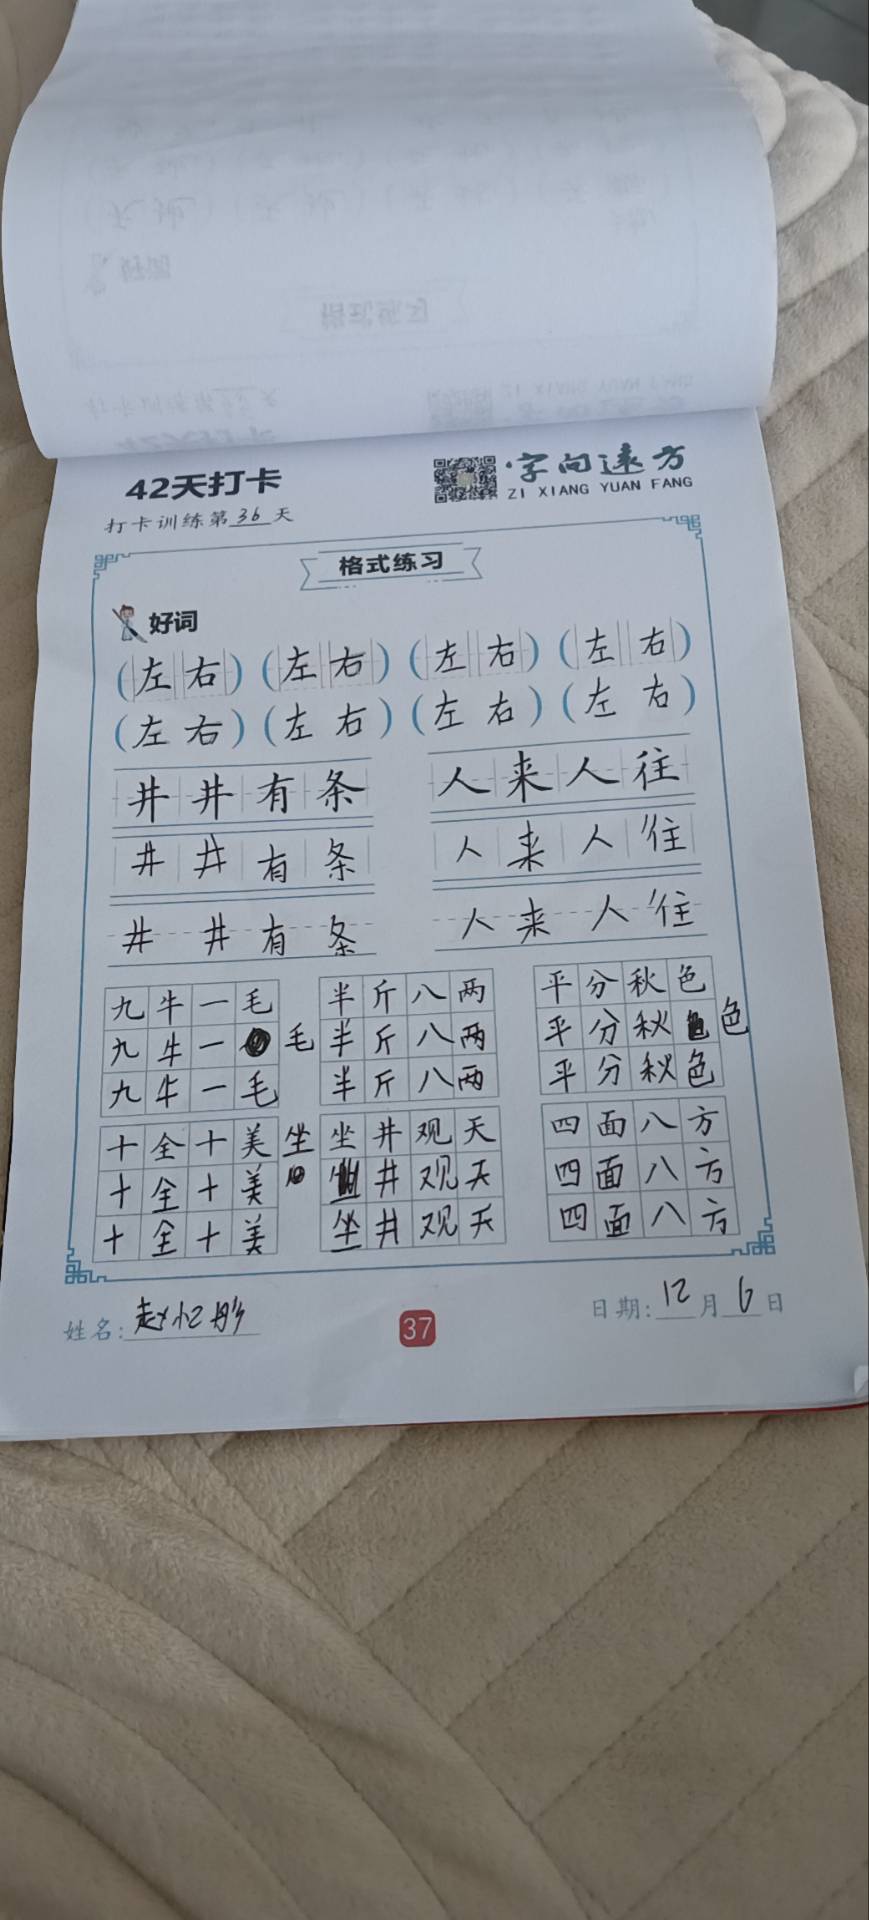 42天打卡
字向远方
ZI XIANG YUAN FANG
打卡训练第36天
格式练习
好词
(左右)(左右)(左右)(左右)
(左右)(左右)(左右)(左右)
井井有条 人来人往
井井有条 人来人往
井井有条 人来人往
九牛一毛 半斤八两 平分秋色
九牛一 毛 半斤八两 平分秋 色
九牛一毛 半斤八两 平分秋色
十全十美 坐 坐井观天 四面八方
十全十美 井观天 四面八方
十全十美 坐井观天 四面八方
姓名:赵
37
日期:12月6日